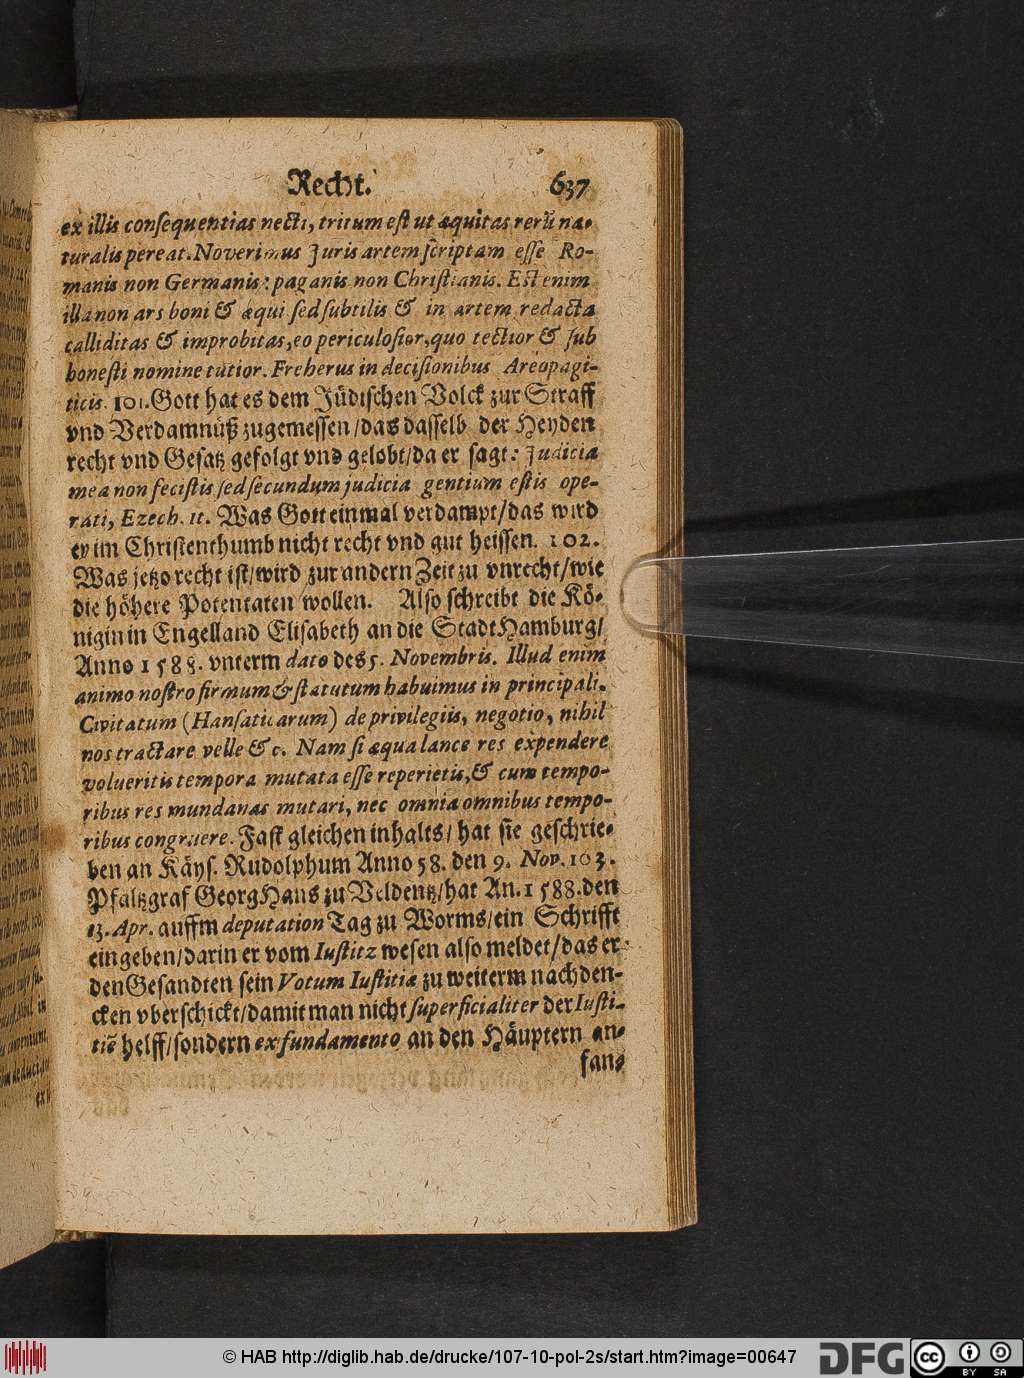 Recht. 637
ex illis consequentias necti, tritum est ut æquitas rerũ na-
turalis pereat. Noverimus Juris artem scriptam esse Ro-
manis non Germanis: paganis non Christianis. Est enim
illa non ars boni & æqui sed subtilis & in artem redacta
calliditas & improbitas, eo periculosior, quo tectior & sub
honesti nomine tutior. Freherus in decisionibus Areopagi-
ticis. 101. Gott hat es dem Jüdischen Volck zur Straff
vnd Verdamnüß zugemessen / das dasselb der Heyden
recht vnd Gesatz gefolgt vnd gelobt / da er sagt: Judicia
mea non fecistis sed secundum judicia gentium estis ope-
rati, Ezech. 11. Was Gott einmal verdampt / das wird
ey im Christenthumb nicht recht vnd gut heissen. 102.
Was jetzo recht ist / wird zur andern Zeit zu vnrecht / wie
die höhere Potentaten wollen. Also schreibt die Kö-
nigin in Engelland Elisabeth an die Stadt Hamburg /
Anno 1588. vnterm dato des 5. Novembris. Illud enim
animo nostro firmum & statutum habuimus in principali.
Civitatum (Hansaticarum) de privilegiis, negotio, nihil
nos tractare velle &c. Nam si æqua lance res expendere
volueritis tempora mutata esse reperietis, & cum tempo-
ribus res mundanas mutari, nec omnia omnibus tempo-
ribus congruere. Fast gleichen inhalts / hat sie geschrie-
ben an Käys. Rudolphum Anno 58. den 9. Nov. 103.
Pfaltzgraf Georg Hans zu Veldentz / hat An. 1588. den
13. Apr. auffm deputation Tag zu Worms / ein Schrifft
eingeben / darin er vom Iustitz wesen also meldet / das er
den Gesandten sein Votum Iustitiæ zu weiterm nachden-
cken vberschickt / damit man nicht superficialiter der Iusti-
tiẽ helff / sondern ex fundamento an den Häuptern an-
fan-
© HAB http://diglib.hab.de/drucke/107-10-pol-2s/start.htm?image=00647
DFG
cc BY SA